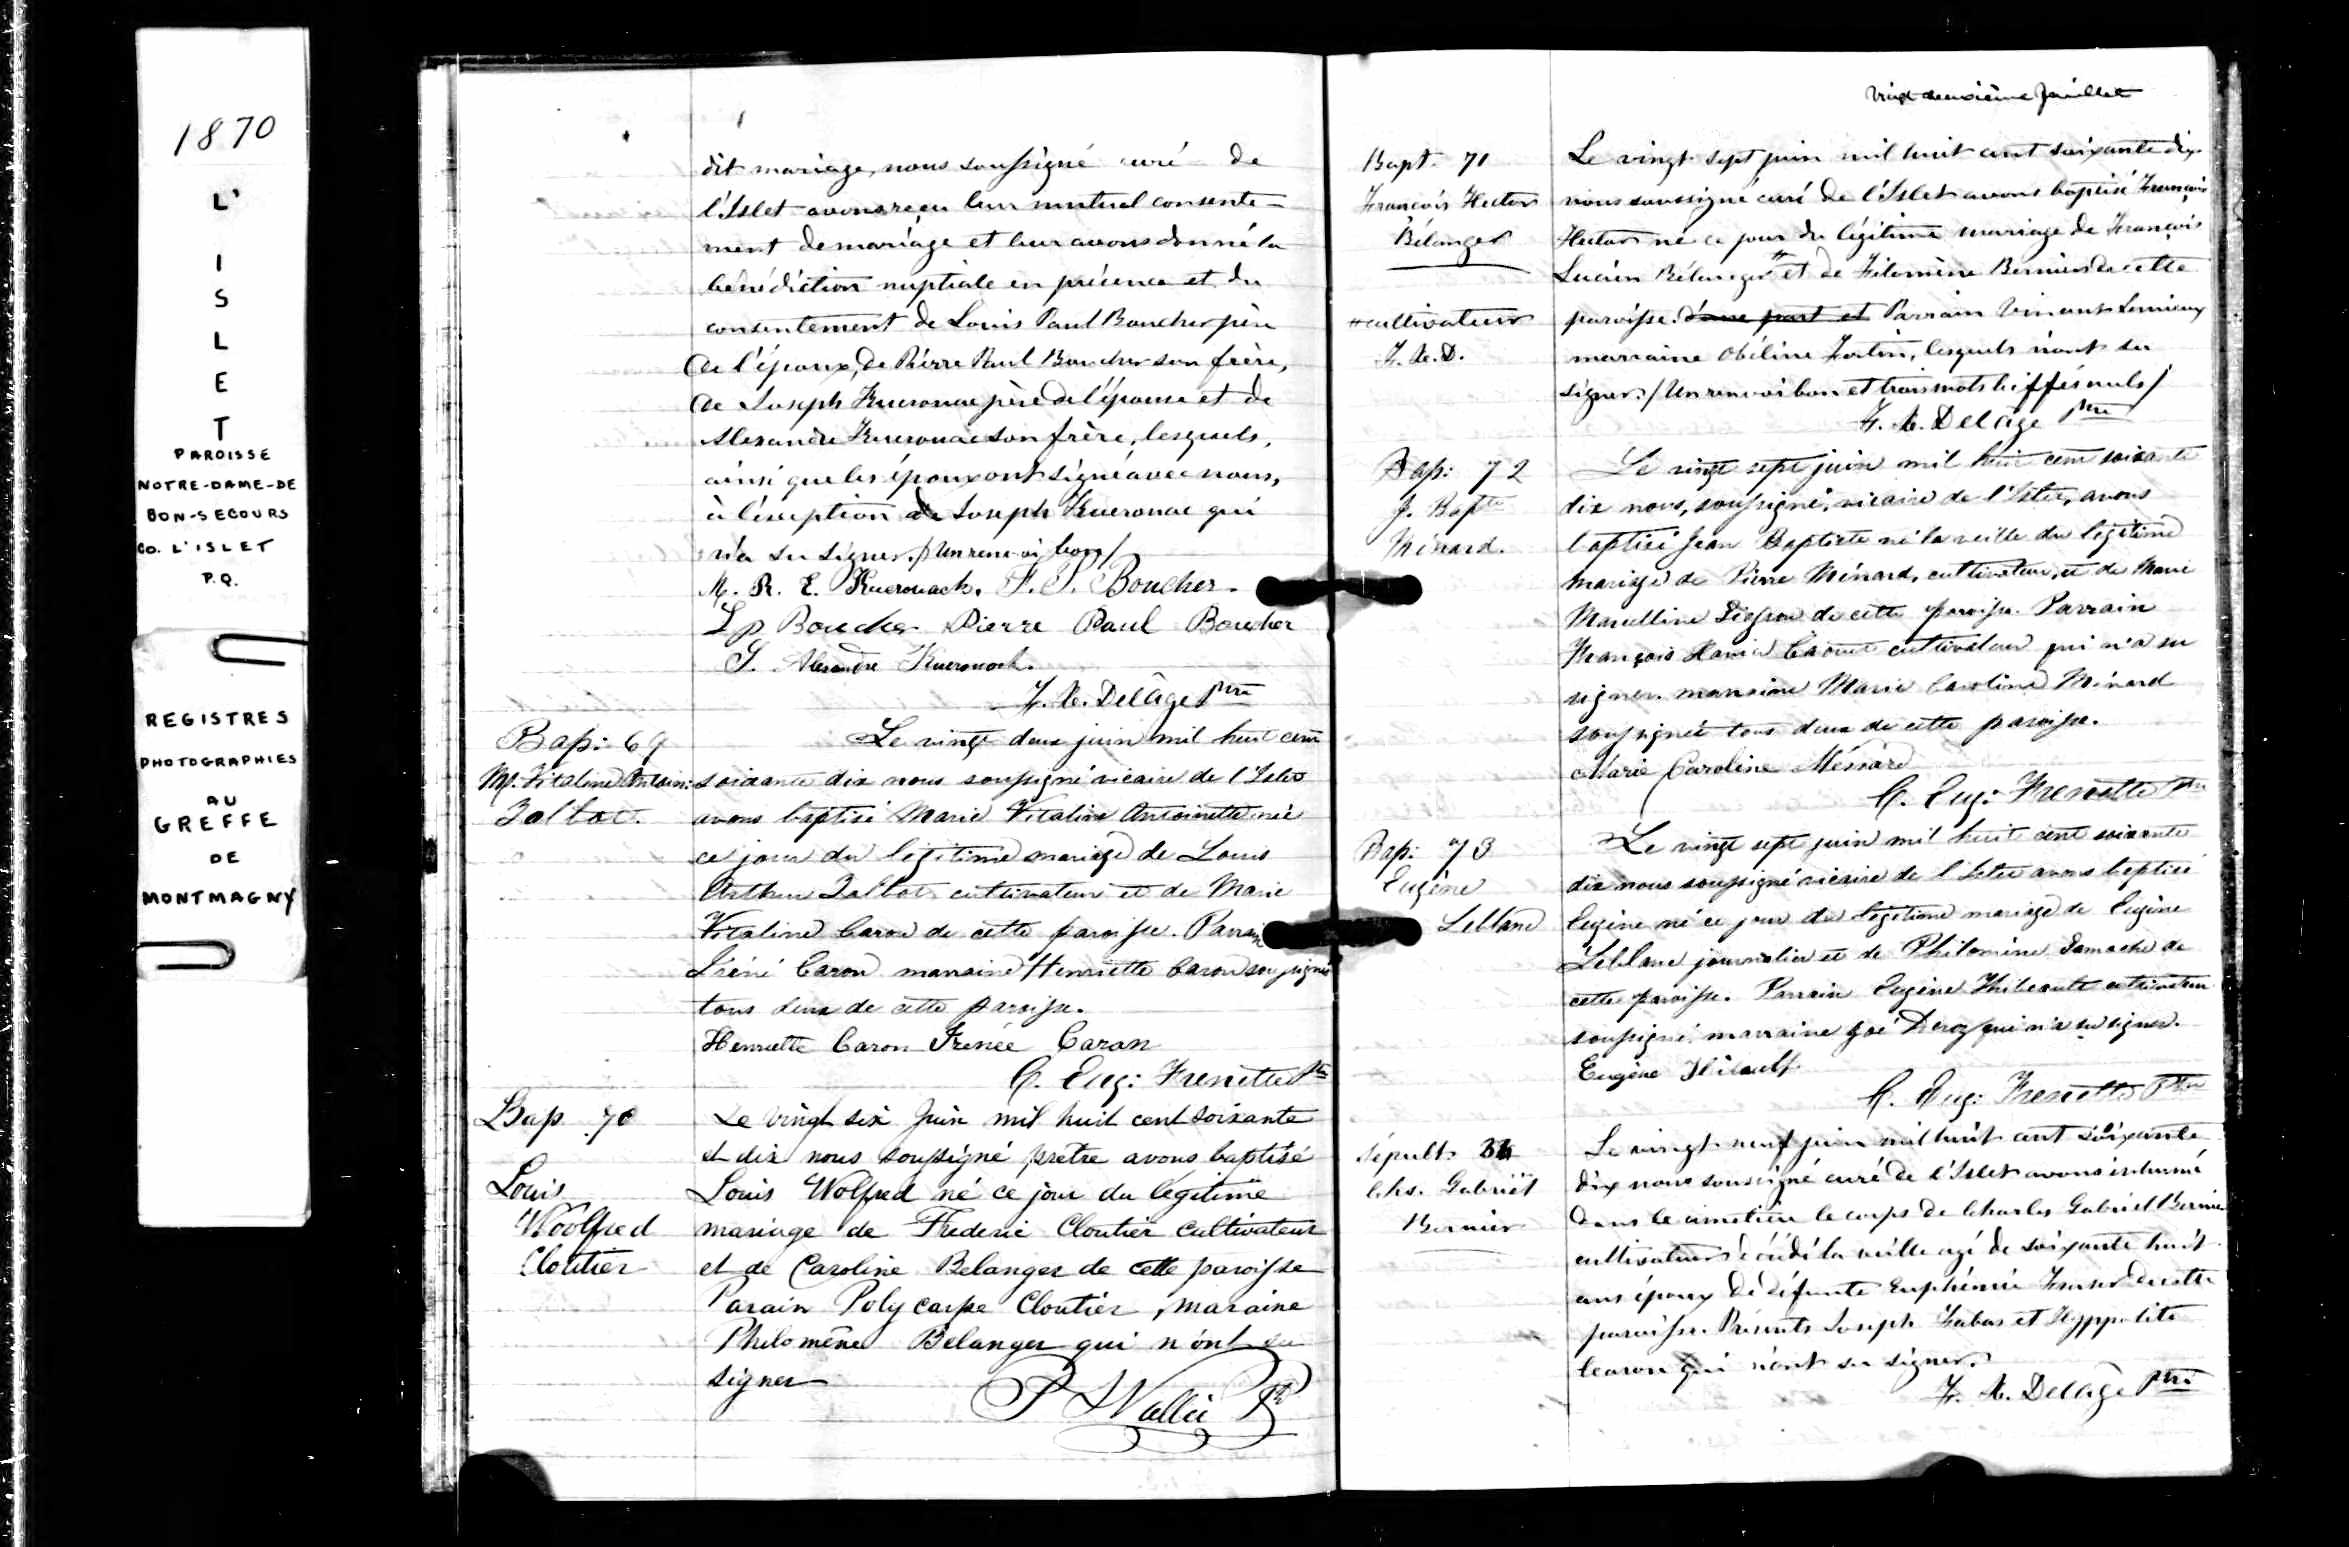 1870
L'
I
S
L
E
T
PAROISSE
NOTRE-DAME-DE
BON-SECOURS
CO. L'ISLET
P.Q.
REGISTRES
PHOTOGRAPHIES
AU
GREFFE
DE
MONTMAGNY
dit mariage, nous soussigné curé de
l'Islet avons reçu leur mutuel consente-
ment de mariage et leur avons donné la
bénédiction nuptiale en présence et du
consentement de Louis Paul Boucher père
de l'époux, de Pierre Paul Boucher son frère,
de Joseph Kuerouac père de l'épouse et de
Alexandre Kuerouac son frère, lesquels,
ainsi que les époux ont signé avec nous,
à l'éxception de Joseph Kuerouac qui
n'a su signer. / Un renvoi bon /
M. R. E. Kuerouack. F. S. Boucher
L P Boucher Pierre Paul Boucher
J. Alexandre Kuerouack.
F. X. Delâge Ptre
Bap: 69
M. Vitaline Antoin:
Talbot.
Le vingt deux juin mil huit cent
soixante dix nous soussigné vicaire de l'Islet
avons baptisé Marie Vitaline Antoinette née
ce jour du légitime mariage de Louis
Arthur Talbot cultivateur et de Marie
Vitaline Caron de cette paroisse. Parrain
Iréné Caron marraine Henriette Caron soussignés
tous deux de cette paroisse.
Henriette Caron Irénée Caron
C. Eug: Frenette Ptre
Bap 70
Louis
Woolfred
Cloutier
Le vingt six Juin mil huit cent soixante
et dix nous soussigné prêtre avons baptisé
Louis Wolfred né ce jour du légitime
mariage de Frederic Cloutier cultivateur
et de Caroline Belanger de cette paroisse
Parain Polycarpe Cloutier, maraine
Philomène Belanger qui n'ont su
signer
Vingt deuxième feuillet
Bapt. 71
François Hector
Bélanger
# cultivateur
F. X. D.
Le vingt sept juin mil huit cent soixante dix
nous soussigné curé de l'Islet avons baptisé François
Hector né ce jour du légitime mariage de François
Lucien Bélanger # et de Filomène Bernier de cette
paroisse. d'une part et Parrain Vincent Lemieux
marraine Obéline Fortin, lesquels n'ont su
signer. / Un renvoi bon et trois mots biffés nuls /
F. X. Delâge Ptre
Bap: 72
J. Bapte
Ménard.
Le vingt sept juin mil huit cent soixante
dix nous, soussigné, vicaire de l'Islet, avons
baptisé Jean Baptiste né la veille du légitime
mariage de Pierre Ménard, cultivateur, et de Marie
Marcelline de cette paroisse. Parrain
François Xavier cultivateur qui n'a su
signer. marraine Marie Caroline Ménard
soussignée tous deux de cette paroisse.
Marie Caroline Ménard
C. Eug: Frenette Ptre
Bap: 73
Eugène
Leblanc
Le vingt sept juin mil huit cent soixante
dix nous soussigné vicaire de l'Islet avons baptisé
Eugène né ce jour du légitime mariage de Eugène
Leblanc journalier et de Philomène Gamache de
cette paroisse. Parrain Eugène Thibeault cultivateur
soussigné marraine Zoé qui n'a su signer.
Eugène
C. Eug: Frenette Ptre
Sépult.
Chs. Gabriel
Bernier
Le vingt neuf juin mil huit cent soixante
dix nous soussigné curé de l'Islet avons inhumé
dans le cimetière le corps de Charles Gabriel Bernier
cultivateur décédé la veille agé de soixante huit
ans époux de défunte Euphémie de cette
paroisse. Présents Joseph et Hyppolite
Caron qui n'ont su signer.
F. X. Delâge Ptre